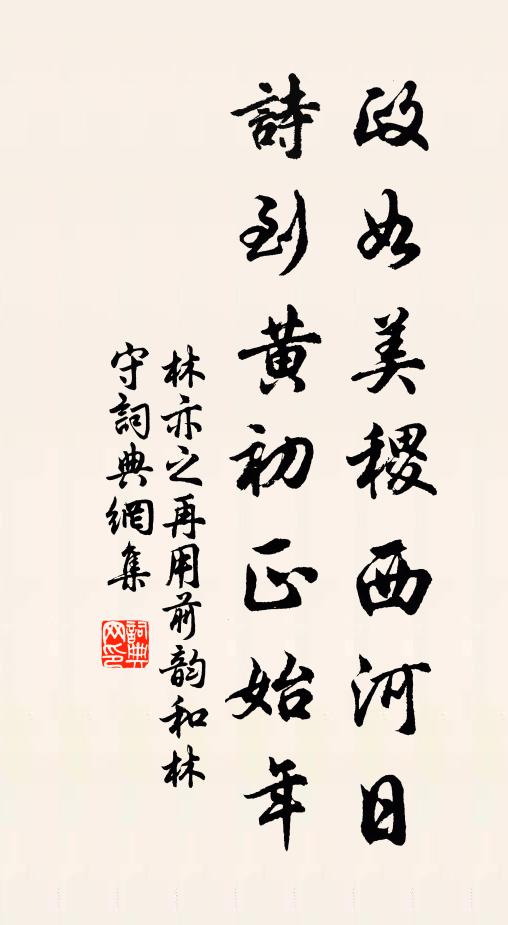 政如美稷西河日
詩到黄初正始年
林亦之再用前韵和林
守詞典網集
詞典网印